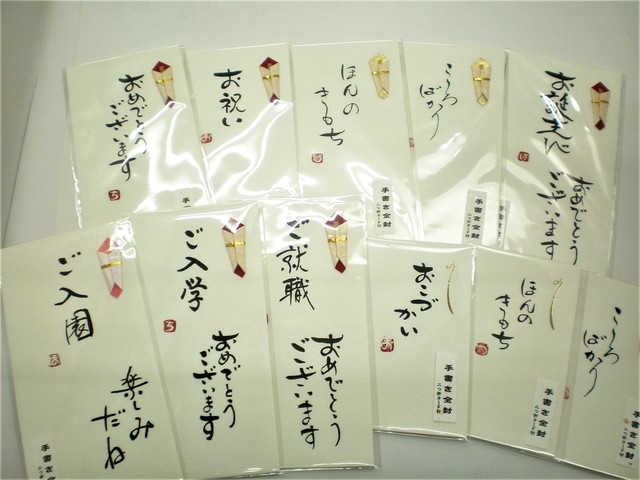 おめでとう
ございます
お祝い
ほんの
きもち
こころ
ばかり
お誕生日
おめでとう
ございます
手書き金封
手書き金封
ご入園
楽しみ
だね
手書き金封
ご入学
おめでとう
ございます
ご就職
おめでとう
ございます
おこづかい
手書き金封
ほんの
きもち
手書き金封
こころ
ばかり
手書き金封